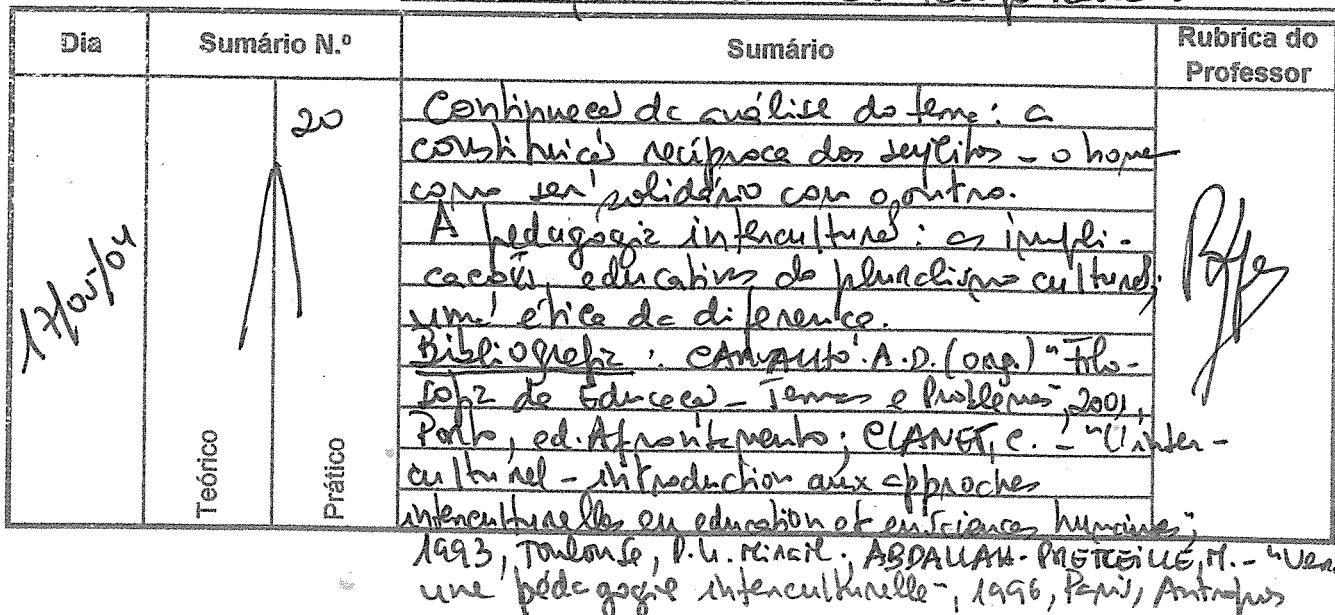 Dia Sumário N.º Sumário Rubrica do Professor
17/05/04
20
Teórico
Prático
Continuação da análise do tema: a
constituição recíproca dos sujeitos - o homem
como ser solidário com o outro.
A pedagogia intercultural: as impli-
cações educativas do pluralismo cultural;
uma ética da diferença.
Bibliografia: CARVALHO, A.D. (org.) "Filo-
sofia da Educação - Temas e Problemas", 2001,
Porto, ed. Afrontamento; CLANET, C. - "L'inter-
culturel - introduction aux approches
interculturelles en education et en sciences humaines",
1993, Toulouse, P.U. Mirail; ABDALLAH-PRETCEILLE, M. - "Vers
une pédagogie interculturelle", 1996, Paris, Antropos